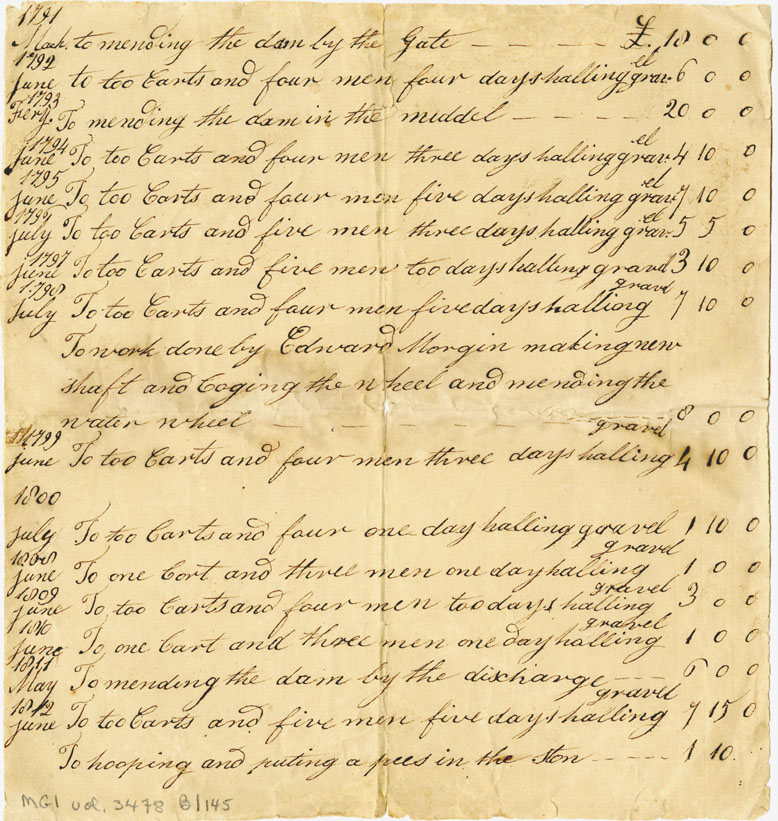 1791
Mach. to mending the dam by the Gate — — — — £. 18 0 0
1792
June to too Carts and four men four days halling gravel 6 0 0
1793
Fery. To mending the dam in the middel — — — — 20 0 0
1794
June To too Carts and four men three days halling gravel 4 10 0
1795
June To too Carts and four men five days halling gravel 7 10 0
July To too Carts and five men three days halling gravel 5 5 0
1797
June To too Carts and five men too days halling gravel 3 10 0
1798
July To too Carts and four men five days halling gravel 7 10 0
To work done by Edward Morgin making new
shaft and Coging the wheel and mending the
water wheel — — — — 8 0 0
1799
June To too Carts and four men three days halling gravel 4 10 0
1800
July To too Carts and four one day halling gravel 1 10 0
1808
June To one Cort and three men one day halling gravel 1 0 0
1809
June To too Carts and four men too days halling gravel 3 0 0
1810
June To one Cart and three men one day halling gravel 1 0 0
1811
May To mending the dam by the discharge — — — 6 0 0
1812
June To too Carts and five men five days halling gravel 7 15 0
To hooping and puting a pees in the Ston — — — 1 10
MG1 vol. 3478 B/145